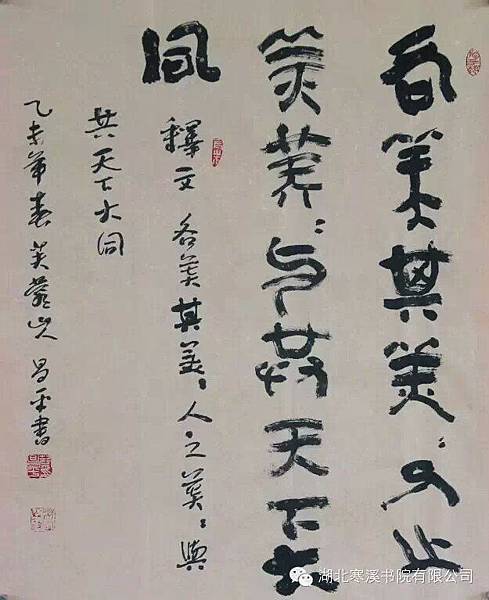 各美其美〻人之
美美〻与共天下大
同
釋文 各美其美〻人之美〻與
共天下大同
乙未年春 昌平書
湖北寒溪书院有限公司